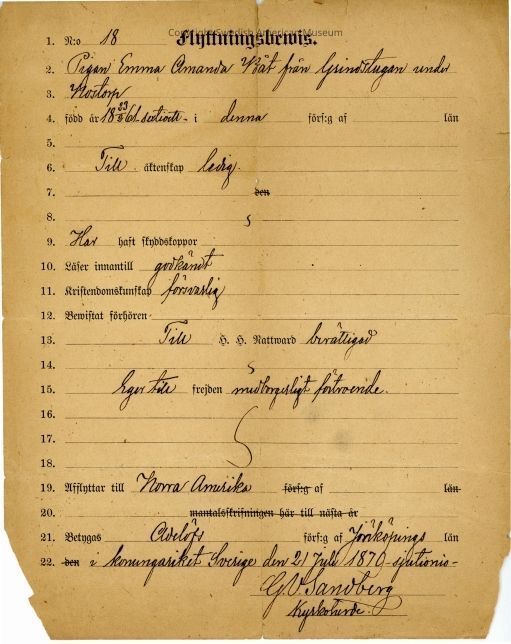 Copyright Swedish American Museum
1. N:o 18 Flyttningsbewis.
2. Pigan Emma Amanda Båt från Grindstugan under
3. Nostorp
4. född år 18 i denna förs:g af län
5.
6. Till äktenskap ledig.
7. den
8.
9. Har haft skyddskoppor
10. Läser innantill godkändt
11. Kristendomskunskap försvarlig
12. Bewistat förhören
13. Till H. H. Nattward berättigad
14.
15. Eger till frejden medborgerligt förtroende.
16.
17.
18.
19. Afflyttar till Norra Amerika förs:g af län
20. mantalsskrifningen här till nästa år
21. Betygas Adelöfs förs:g af Jönköpings län
22. den i konungariket Sverige den 21 Juli 1870
G. V. Sandberg
Kyrkoherde.